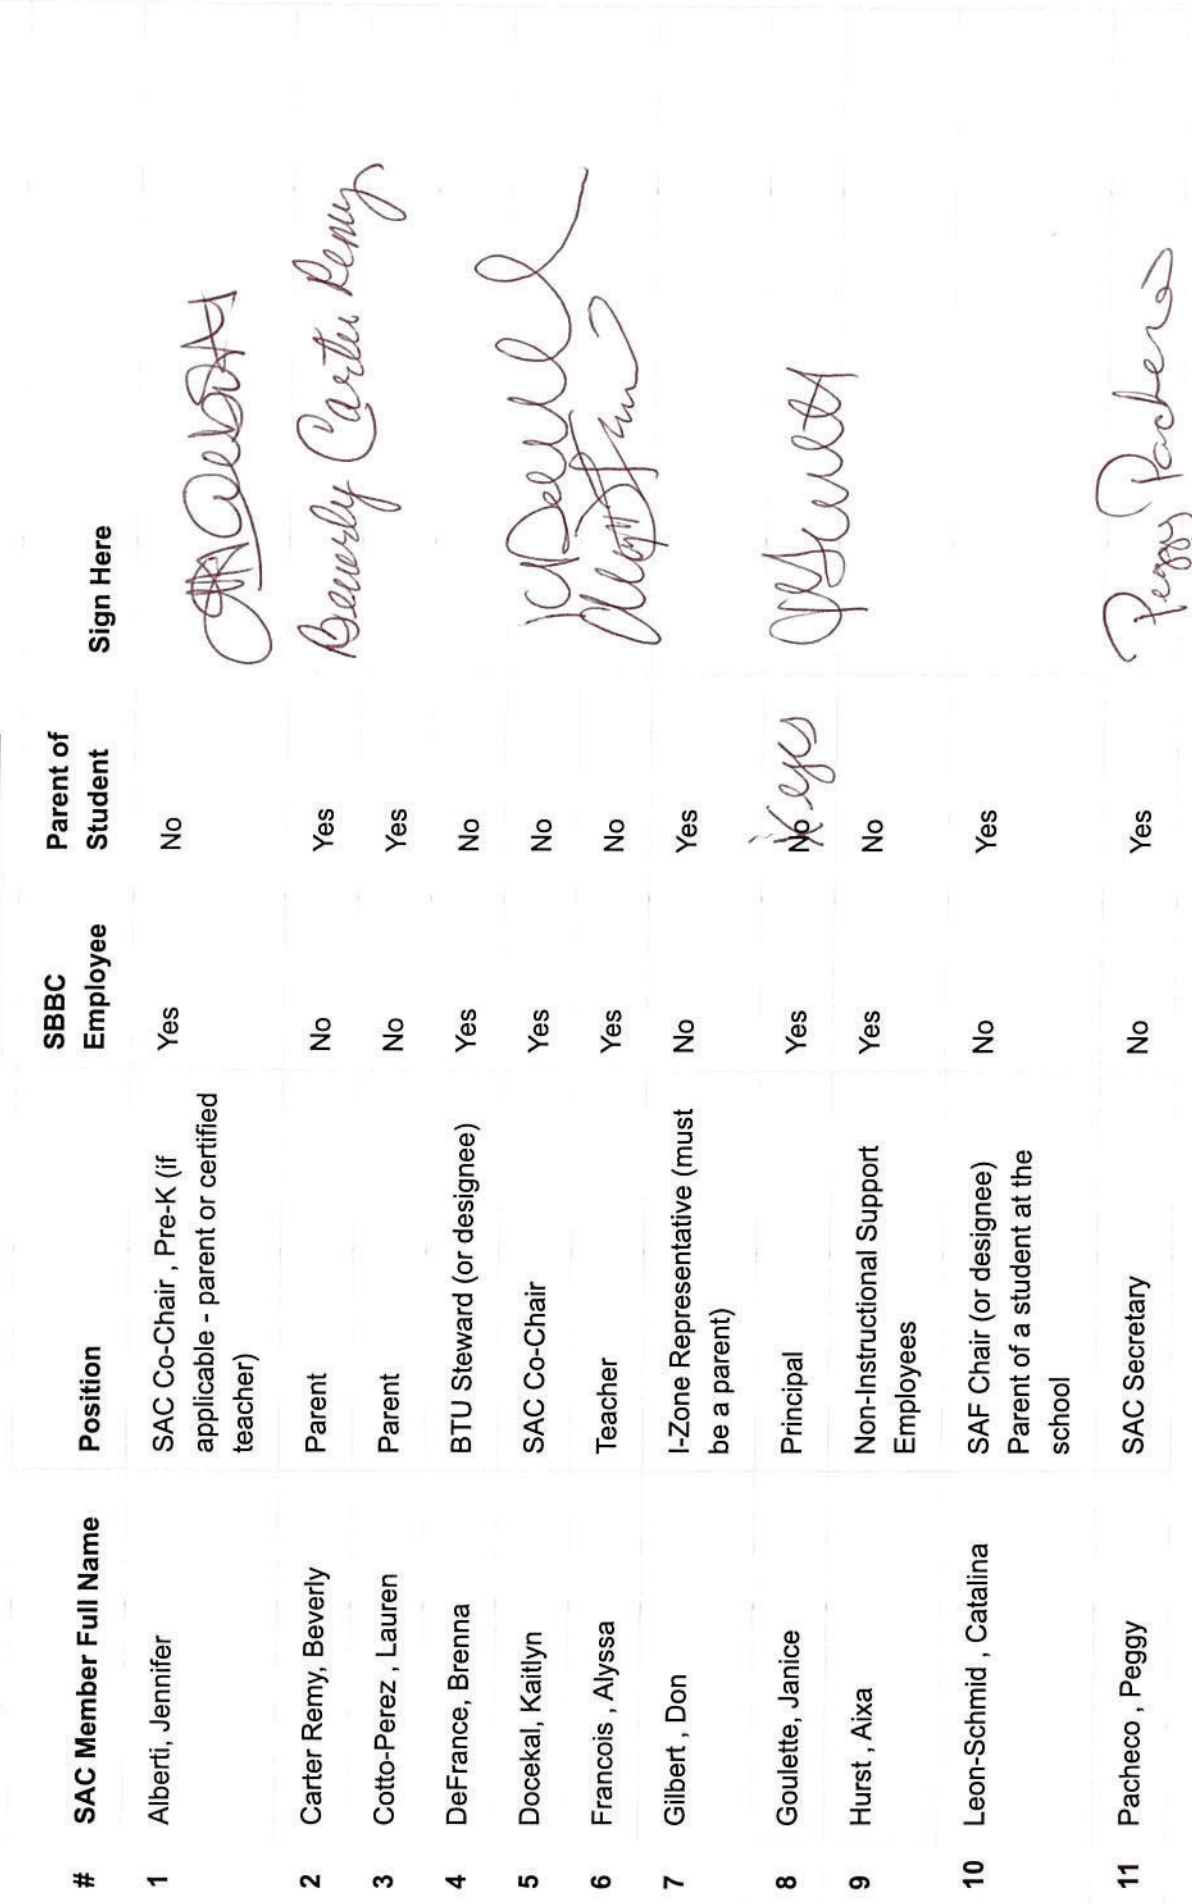 # SAC Member Full Name Position SBBC Employee Parent of Student Sign Here
1 Alberti, Jennifer SAC Co-Chair , Pre-K (if Yes No
applicable - parent or certified
teacher)
2 Carter Remy, Beverly Parent No Yes Beverly Carter Remy
3 Cotto-Perez , Lauren Parent No Yes
4 DeFrance, Brenna BTU Steward (or designee) Yes No
5 Docekal, Kaitlyn SAC Co-Chair Yes No
6 Francois , Alyssa Teacher Yes No
7 Gilbert , Don I-Zone Representative (must No Yes
be a parent)
8 Goulette, Janice Principal Yes No yes
9 Hurst , Aixa Non-Instructional Support Yes No
Employees
10 Leon-Schmid , Catalina SAF Chair (or designee) No Yes
Parent of a student at the
school
11 Pacheco , Peggy SAC Secretary No Yes Peggy Pacheco